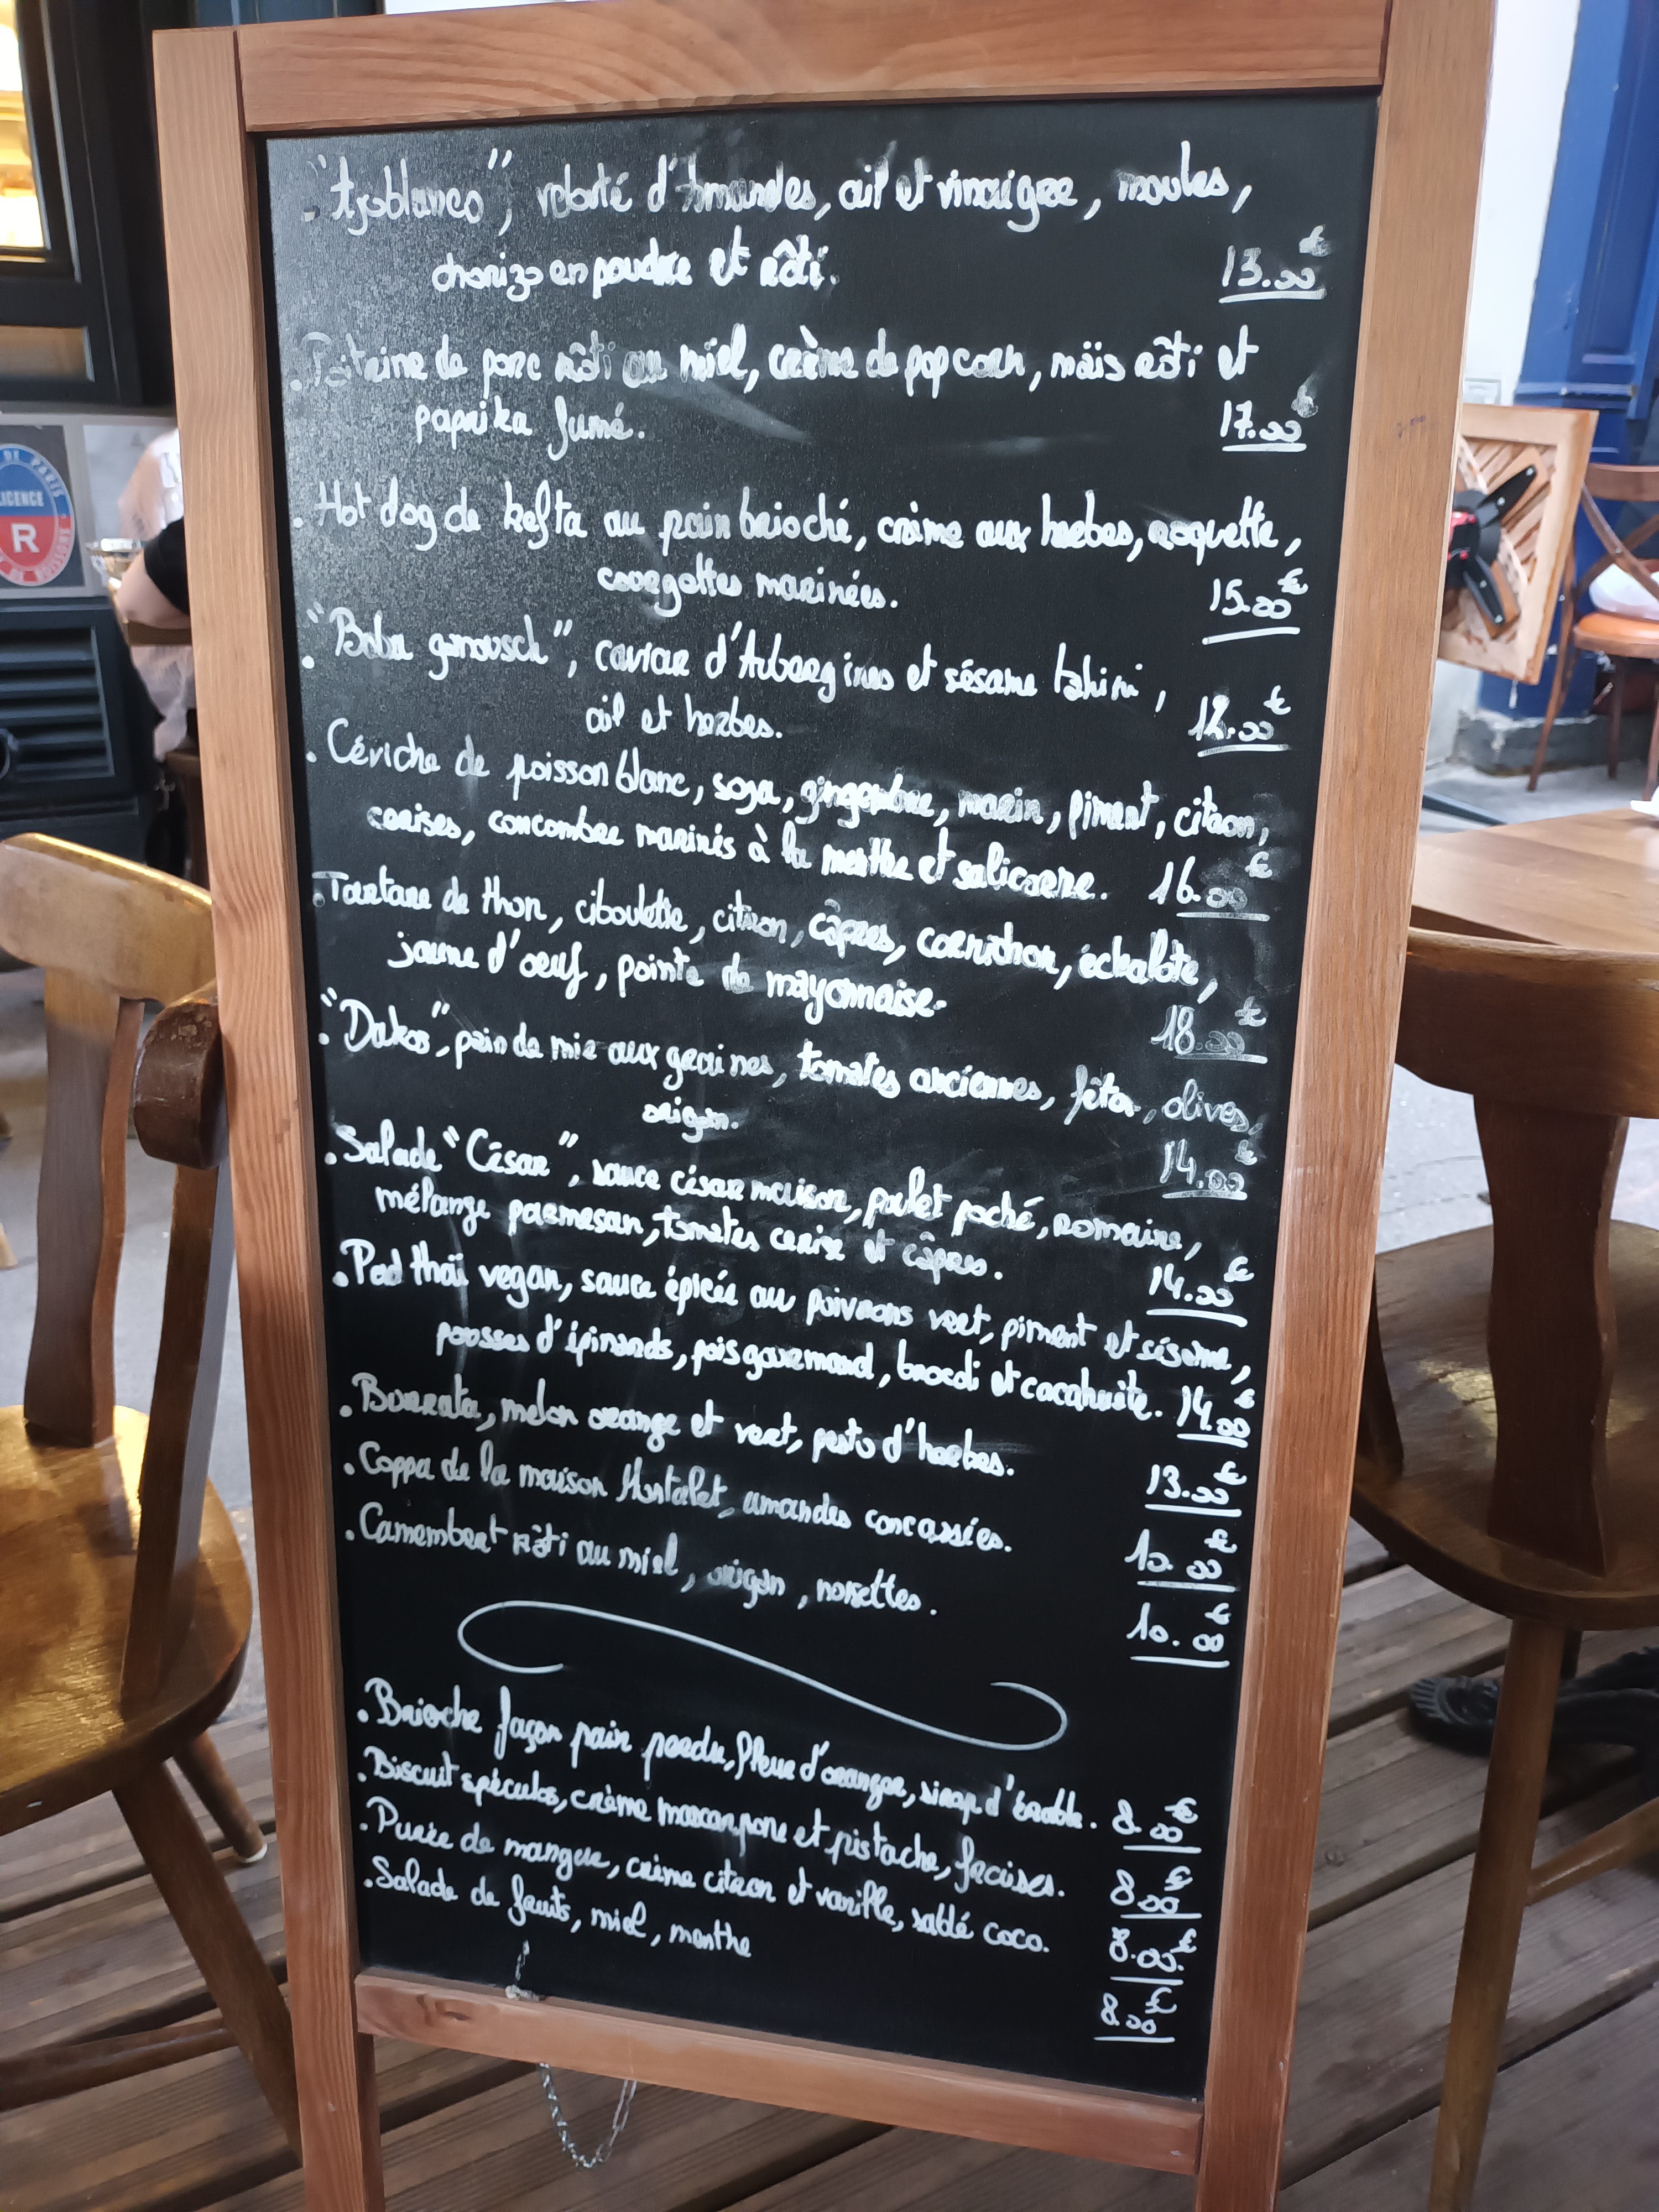 . "Ajoblanco", velouté d'Amandes, ail et vinaigre, moules,
chorizo en poudre et rôti. 13.00€
. Poitrine de porc rôti au miel, crème de pop corn, maïs rôti et
paprika fumé. 17.00€
. Hot dog de kefta au pain brioché, crème aux herbes, roquette,
courgettes marinées. 15.00€
. "Baba ganousch", caviar d'Aubergines et sésame tahini,
ail et herbes. 12.00€
. Céviche de poisson blanc, soja, gingembre, mirin, piment, citron,
cerises, concombre marinés à la menthe et salicorne. 16.00€
. Tartare de thon, ciboulette, citron, câpres, cornichon, échalote,
jaune d'oeuf, pointe de mayonnaise. 18.00€
. "Dakos", pain de mie aux graines, tomates anciennes, fêta, olives,
origan. 14.00€
. Salade "César", sauce césar maison, poulet poché, romaine,
mélange parmesan, tomates cerise et câpres. 14.00€
. Pad thaï vegan, sauce épicée au poivrons vert, piment et sésame,
pousses d'épinards, pois gourmand, brocoli et cacahuète. 14.00€
. Burrata, melon orange et vert, pesto d'herbes. 13.00€
. Coppa de la maison Montalet, amandes concassées. 10.00€
. Camembert rôti au miel, origan, noisettes. 10.00€
. Brioche façon pain perdu, fleur d'oranger, sirop d'érable. 8.00€
. Biscuit spéculos, crème mascarpone et pistache, fraises. 8.00€
. Purée de mangue, crème citron et vanille, sablé coco. 8.00€
. Salade de fruits, miel, menthe 8.00€
DE PARIS
LICENCE
R